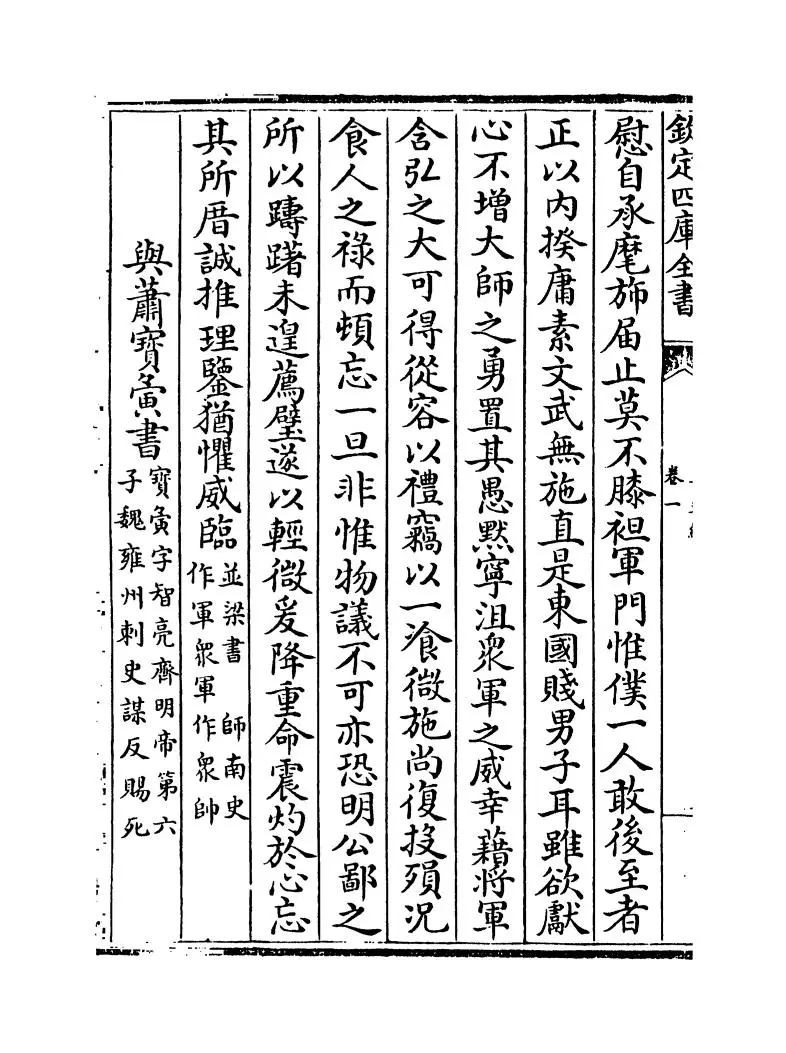 欽定四庫全書
卷一
慰自承麾斾届止莫不膝袒軍門惟僕一人敢後至者
正以内揆庸素文武無施直是東國賤男子耳雖欲獻
心不增大師之勇置其愚黙寧沮衆軍之威幸藉將軍
含弘之大可得從容以禮竊以一飡微施尚復投殞況
食人之祿而頓忘一旦非惟物議不可亦恐明公鄙之
所以躊躇未遑薦璧遂以輕微爰降重命震灼於心忘
其所厝誠推理鑒猶懼威臨
並梁書　師南史
作軍衆軍作衆帥
與蕭寶夤書
寶夤字智亮齊明帝第六
子魏雍州刺史謀反賜死